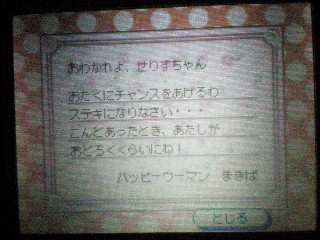 おわかれよ、せりすちゃん
おたくにチャンスをあげるわ
ステキになりなさい・・・
こんどあったとき、あたしが
おどろくくらいにね！
ハッピーウーマン　まきば
とじる